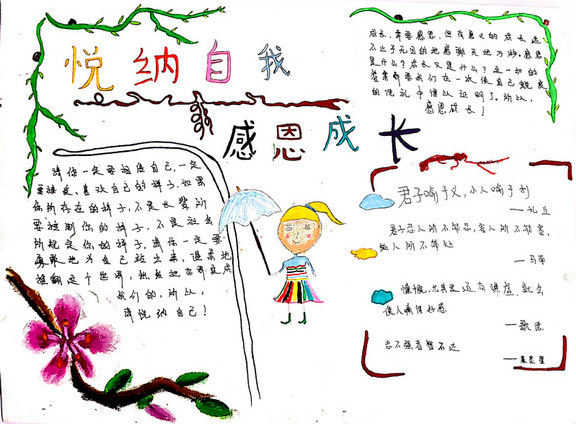 悦纳自我
感恩成长
成长,需要感恩,但有意义的成长远
不止于无穷的地感谢天地万物,感恩
是什么?成长又是什么?这一切的
答案都要我们在一次使自己蜕变
的洗礼中得以证明了,所以,
感恩成长!
请你一定要相信自己,一定
要接受、喜欢自己的样子,如果
你所存在的样子,不是长辈所
要规划你的样子,不是社会
所规定你的样子,请你一定要
勇敢地为自己站出来,温柔地
推翻这个世界,然后把世界变成
我们的,所以,
请悦纳自己!
君子喻于义,小人喻于利
——孔丘
君子忍人所不能忍,容人所不能容,
处人所不能处
慷慨,尤其是还有谦虚,就会
使人赢得好感
——歌德
志不强者智不达